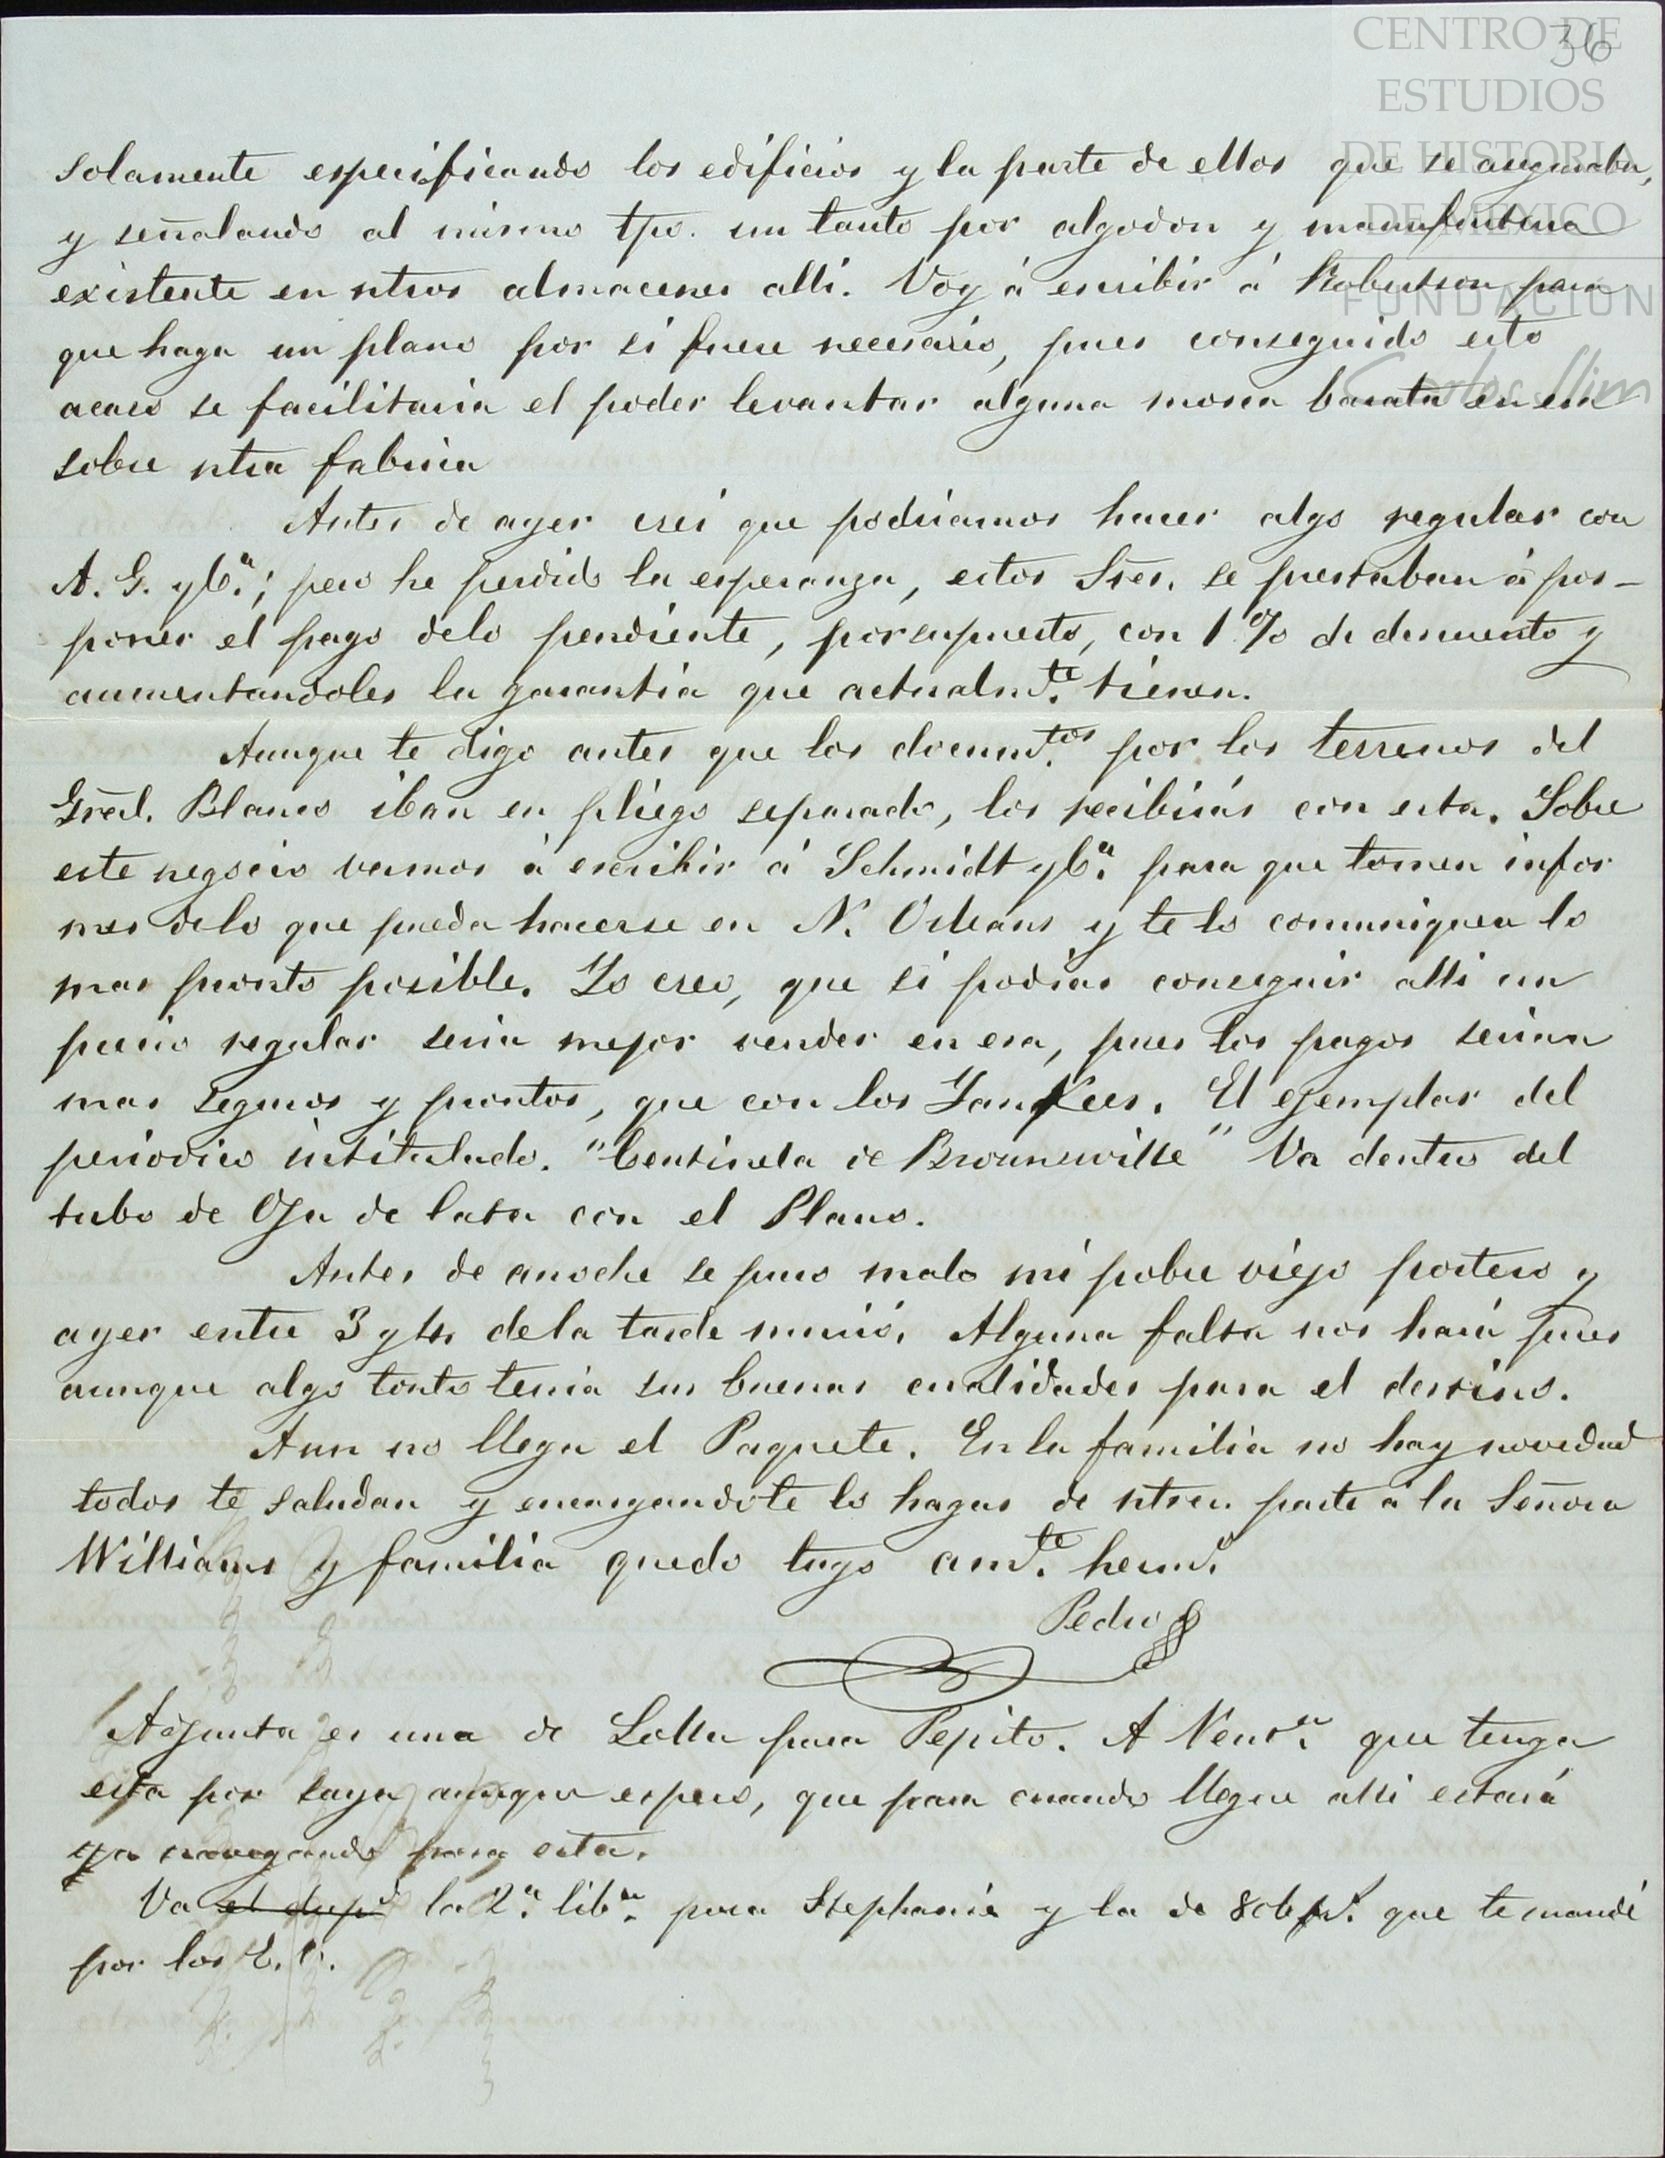 36
CENTRO DE
ESTUDIOS
DE HISTORIA
DE MEXICO
FUNDACION
Carlos Slim
solamente especificando los edificios y la parte de ellos que se aseguraba,
y señalando al mismo tpo. un tanto por algodon y manufactura
existente en ntros almacenes alli. Voy á escribir á Robertson para
que haga un plano por si fuere necesario, pues conseguido esto
acaso se facilitaria el poder levantar alguna mosca barata en esa
sobre ntra fabrica
Antes de ayer crei que podriamos hacer algo regular con
A. G. y Cª.; pero he perdido la esperanza, estos Sres. se prestaban á pos-
poner el pago delo pendiente, porsupuesto, con 1 % de descuento y
aumentandoles la garantia que actualmte. tienen.
Aunque te digo antes que los documtos. por los terrenos del
Gral. Blanco iban en pliego separado, los recibirás con esta. Sobre
este negocio vamos á escribir á Schmidt y Cª. para que tomen infor
mes delo que pueda hacerse en N. Orleans y te lo comuniquen lo
mas pronto posible. Yo creo, que si podias conseguir alli un
precio regular seria mejor vender en esa, pues los pagos serian
mas seguros y prontos, que con los Yankees. El ejemplar del
periodico intitulado. "Centinela de Brownsville" Va dentro del
tubo de Oja de lata con el Plano.
Antes de anoche se puso malo mi pobre viejo portero y
ayer entre 3 y 4 de la tarde murió. Alguna falta nos hará pues
aunque algo tonto tenia sus buenas cualidades para el destino.
Aun no llega el Paquete. En la familia no hay novedad
todos te saludan y encargandote lo hagas de ntra. parte á la Señora
Williams y familia quedo tuyo amte. hermo.
Pedro
Adjunta es una de Lolla para Pepito. A Ventª. que tenga
esta por suya aunque espero, que para cuando llegue alli estará
ya navegando para esta.
Va el dupdo la 2ª. libª. para Stephanie y la de que te mandé
por los E. U.